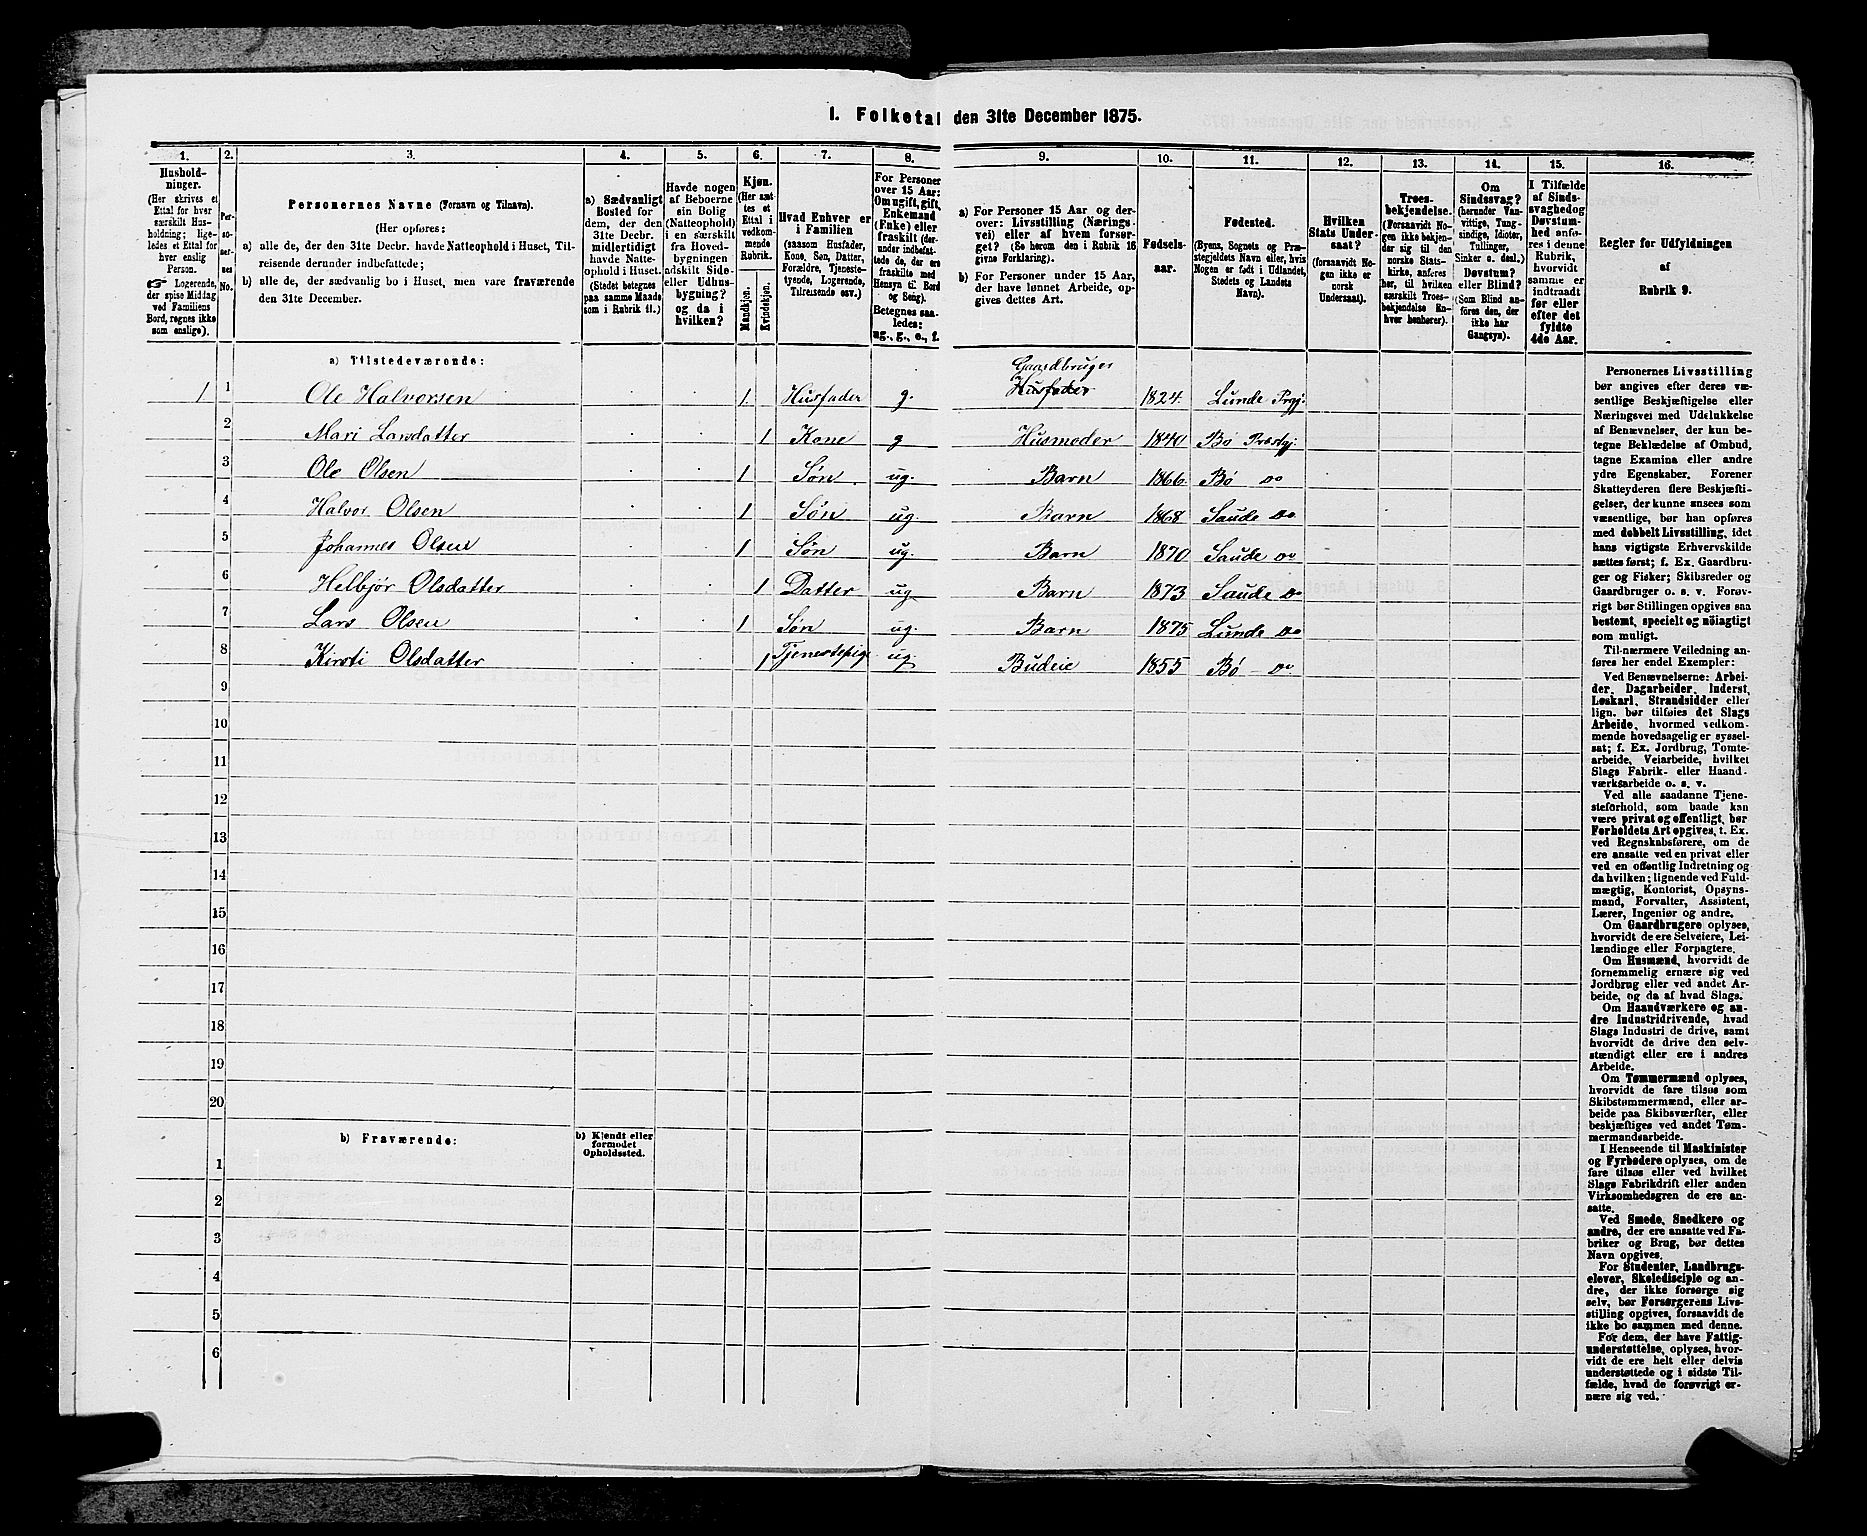 I. Folketal den 31te December 1875.
1. 2. 3. 4. 5. 6. 7. 8. 9. 10. 11. 12. 13. 14. 15. 16.
Hushold-
ninger.
(Her skrives et
Ettal for hver
særskilt Hus-
holdning; lige-
ledes et Ettal for
hver enslig
Person.
☛ Logerende,
der spise Middag
ved Familiens
Bord, regnes ikke
som enslige).
Per-
so-
ner-
nes
No.
Personernes Navne (Fornavn og Tilnavn).
(Her opføres:
a) alle de, der den 31te Decbr. havde Natteophold i Huset, Til-
reisende derunder indbefattede;
b) alle de, der sædvanlig bo i Huset, men vare fraværende
den 31te December.
a) Sædvanligt
Bosted for
dem, der den
31te Decbr.
midlertidigt
havde Natte-
ophold i Huset.
(Stedet betegnes
paa samme Maade
som i Rubrik 11.)
Havde nogen
af Beboerne
sin Bolig
(Natteophold)
i en særskilt
fra Hoved-
bygningen
adskilt Side-
eller Udhus-
bygning?
og da i
hvilken?
Kjøn.
(Her sæt-
tes et
Ettal i
vedkom-
mende
Rubrik.
Mandkjøn.
Kvindekjøn.
Hvad Enhver er
i Familien
(saasom Husfader,
Kone, Søn, Datter,
Forældre, Tjeneste-
tyende, Logerende,
Tilreisende osv.)
For Personer
over 15 Aar:
Om ugift, gift,
Enkemand
(Enke) eller
fraskilt (der-
under indbefat-
tede de, der ere
fraskilte med
Hensyn til Bord
og Seng).
Betegnes saa-
ledes:
ug., g., e., f.
a) For Personer 15 Aar og der-
over: Livsstilling (Nærings-
vei) eller af hvem forsør-
get? (Se herom den i Rubrik 16
givne Forklaring).
b) For Personer under 15 Aar,
der have lønnet Arbeide, op-
gives dettes Art.
Fødsels-
aar.
Fødested.
(Byens, Sognets og Præ-
stegjeldets Navn eller, hvis
Nogen er født i Udlandet,
Stedets og Landets
Navn).
Hvilken
Stats Under-
saat?
(forsaavidt No-
gen ikke er
norsk
Undersaat).
Troes-
bekjendelse.
(Forsaavidt No-
gen ikke bekjen-
der sig til den
norske Stats-
kirke, anføres
her, til hvilken
særskilt Troes-
bekjendelse En-
hver henhører).
Om
Sindssvag?
(herunder Van-
vittige, Tung-
sindige, Idioter,
Tullinger,
Sinker o. desl.)
Døvstum?
eller Blind?
(Som Blind an-
føres den, der
ikke har
Gangsyn).
I Tilfælde
af Sinds-
svaghed og
Døvstum-
hed anfø-
res i denne
Rubrik,
hvorvidt
samme er
indtraadt
før eller
efter det
fyldte
4de Aar.
Regler for Udfyldningen
af
Rubrik 9.
a) Tilstedeværende:
Gaardbruger
1 1 Ole Halvorsen 1. Husfader g. Husfader 1824. Lunde Prgj.
2 Mari Larsdatter 1 Kone g Husmoder 1840 Bø Præstgj.
3 Ole Olsen 1 Søn. ug. Barn 1866. Bø do
4 Halvor Olsen 1 Søn ug. Barn 1868 Saude do
5 Johannes Olsen 1 Søn ug. Barn 1870 Saude do
6 Helbjør Olsdatter 1 Datter ug. Barn 1873 Saude do
7 Lars Olsen 1 Søn ug. Barn 1875 Lunde do
8 Kirsti Olsdatter 1 Tjenestepige ug. Budeie 1855 Bø - do
9
10
11
12
13
14
15
16
17
18
19
20
b) Fraværende:
b) Kjendt eller
formodet
Opholdssted.
1
2
3
4
5
6
Personernes Livsstilling
bør angives efter deres væ-
sentlige Beskjæftigelse eller
Næringsvei med Udelukkelse
af Benævnelser, der kun be-
tegne Beklædelse af Ombud,
tagne Examina eller andre
ydre Egenskaber. Forener
Skatteyderen flere Beskjæfti-
gelser, der kunne ansees som
væsentlige, bør han opføres
med dobbelt Livsstilling, idet
hans vigtigste Erhvervskilde
sættes først; f. Ex. Gaardbru-
ger og Fisker; Skibsreder og
Gaardbruger o. s. v. Forøv-
rigt bør Stillingen opgives saa
bestemt, specielt og nöiagtigt
som muligt.
Til nærmere Veiledning an-
føres her endel Exempler:
Ved Benævnelserne: Arbei-
der, Dagarbeider, Inderst,
Løskarl, Strandsidder eller
lign. bør tilføies det Slags
Arbeide, hvormed vedkom-
mende hovedsagelig er syssel-
sat; f. Ex. Jordbrug, Tomte-
arbeide, Veiarbeide, hvilket
Slags Fabrik- eller Haand-
værksarbeide o. s. v.
Ved alle saadanne Tjene-
steforhold, som baade kan
være privat og offentligt, bør
Forholdets Art opgives, t. Ex.
ved Regnskabsførere, om de
ere ansatte ved en privat eller
ved en offentlig Indretning og
da hvilken; lignende ved Fuld-
mægtig, Kontorist, Opsyns-
mand, Forvalter, Assistent,
Lærer, Ingeniør og andre.
Om Gaardbrugere oplyses,
hvorvidt de ere Selveiere, Lei-
lændinge eller Forpagtere.
Om Husmænd, hvorvidt de
fornemmelig ernære sig ved
Jordbrug eller ved andet Ar-
beide, og da af hvad Slags.
Om Haandværkere og an-
dre Industridrivende, hvad
Slags Industri de drive, samt
hvorvidt de drive den selv-
stændigt eller ere i andres
Arbeide.
Om Tømmermænd oplyses,
hvorvidt de fare tilsøs som
Skibstømmermænd, eller ar-
beide paa Skibsværfter, eller
beskjæftiges ved andet Tøm-
mermandsarbeide.
I Henseende til Maskinister
og Fyrbødere oplyses, om de
fare tilsøs eller ved hvilket
Slags Fabrikdrift eller anden
Virksomhedsgren de ere an-
satte.
Ved Smede, Snedkere og
andre, der ere ansatte ved Fa-
briker og Brug, bør dettes
Navn opgives.
For Studenter, Landbrugs-
elever, Skoledisciple og an-
dre, der ikke forsørge sig
selv, bør Forsørgerens Livs-
stilling opgives, forsaavidt de
ikke bo sammen med denne.
For dem, der have Fattig-
understøttelse, oplyses, hvor-
vidt de ere helt eller delvis
understøttede og i sidste Til-
fælde, hvad de forøvrigt er-
nære sig ved.